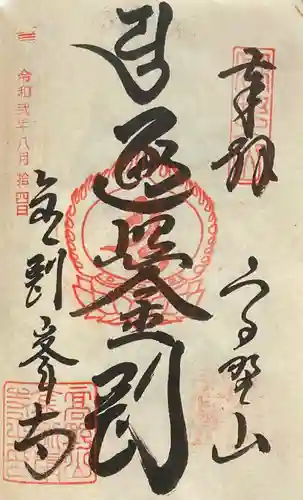 奉拝
高野山
遍照金剛
令和弐年八月拾四日
金剛峯寺